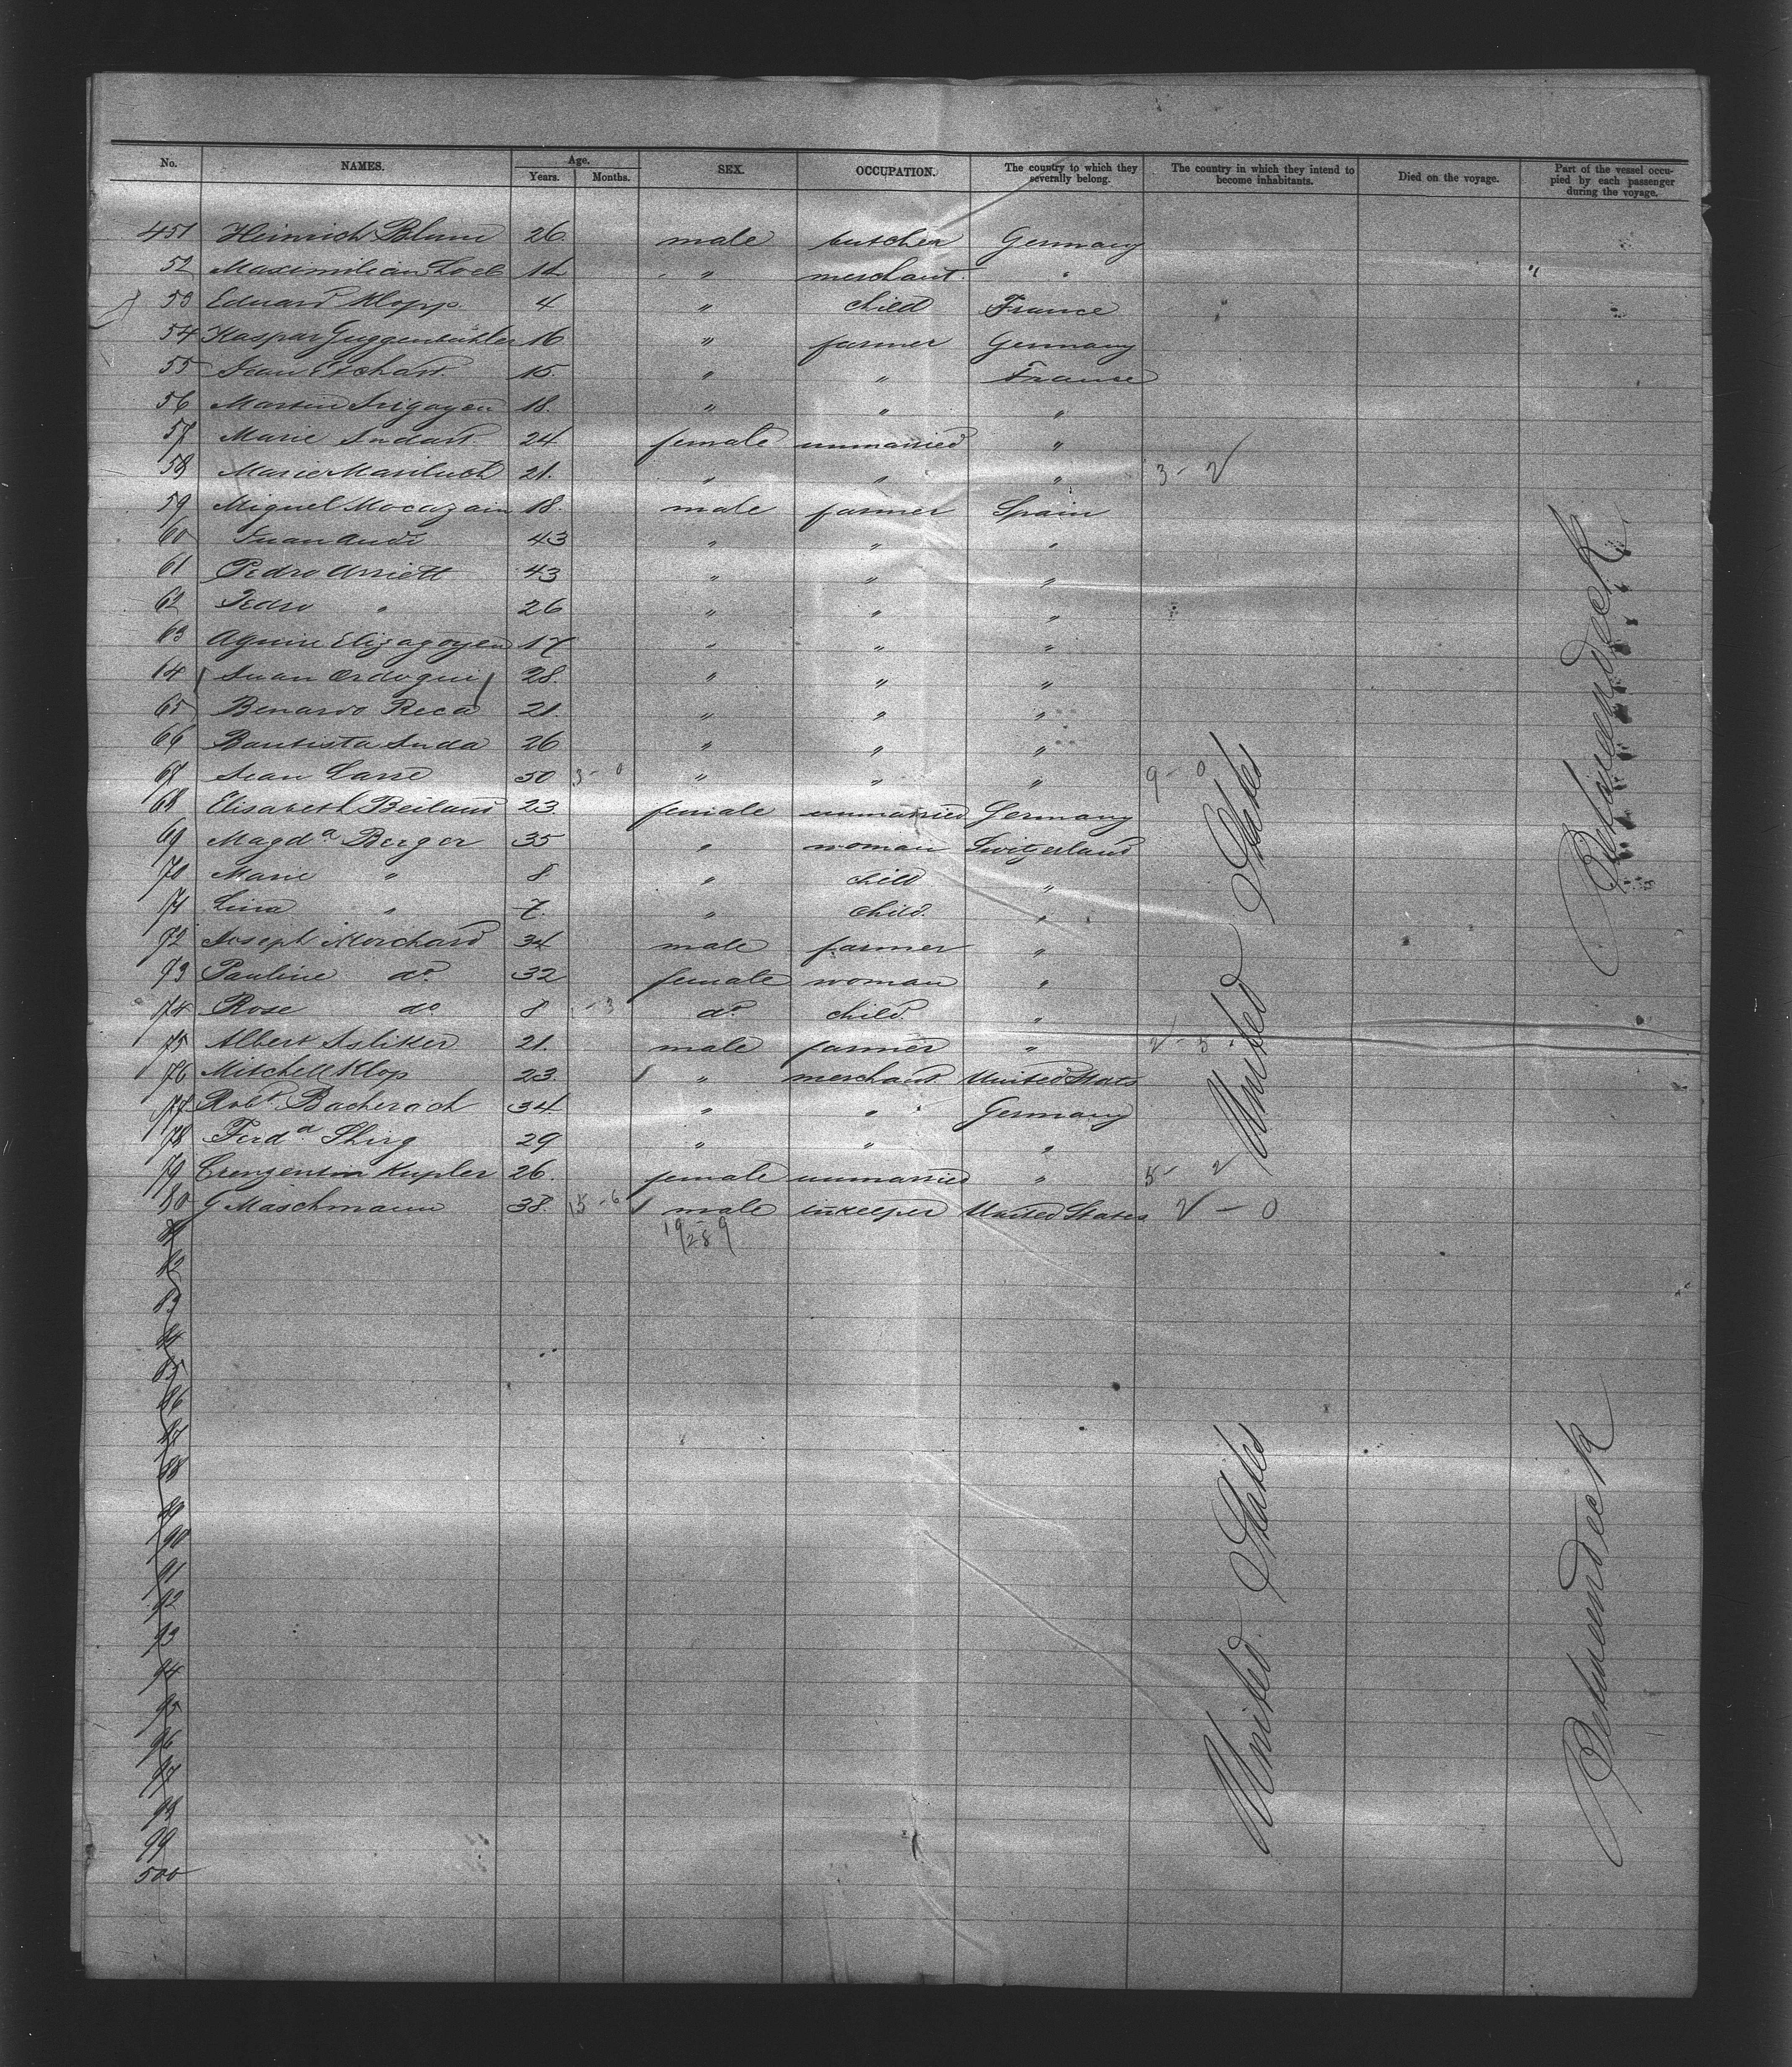 No. NAMES. Age. Years. Months. SEX. OCCUPATION. The country to which they severally belong. The country in which they intend to become inhabitants. Died on the voyage. Part of the vessel occupied by each passenger during the voyage.
451 Heinrich Blum 26 male butcher Germany
52 Maximilian Loeb 14 " merchant "
53 Eduard Klopp 4 " child France
54 Kaspar Guggenbühler 16 " farmer Germany
55 Jean Etchart 15 " " France
56 Martin Irigoyen 18 " " "
57 Marie Indart 24 female unmarried "
58 Marie 21 " " " 3 - 2
59 Miguel Mocazain 18 male farmer Spain
60 Juan 43 " " "
61 Pedro Arriett 43 " " "
62 Pedro " 26 " " "
63 Elizagoyen 17 " " "
64 Juan Ordoqui 28 " " "
65 Benardo Reca 21 " " "
66 Bautista Inda 26 " " "
67 Jean Larre 50 3 - 0 " " " 9 - 0
68 Elisabeth Beiland 23 female unmarried Germany
69 Magda Berger 35 " woman Switzerland
70 Marie " 8 " child "
71 Lina " 7 " child "
72 Joseph Morchard 34 male farmer "
73 Pauline do 32 female woman "
74 Rose do 8 - 3 do child "
75 Albert Isliker 21 male farmer " 2 - 5
76 Mitchell Klop 23 " merchant United States
77 Robt Bacherach 34 " " Germany
78 Ferda 29 " " "
79 Kupler 26 female unmarried " 5 - 2
80 G Maschmann 38 15 - 6 male inkeeper United States 2 - 0
81 19 - 9
82 28
83
84
85
86
87
88
89
90
91
92
93
94
95
96
97
98
99
500
United States
United States
Betweendeck
Betweendeck